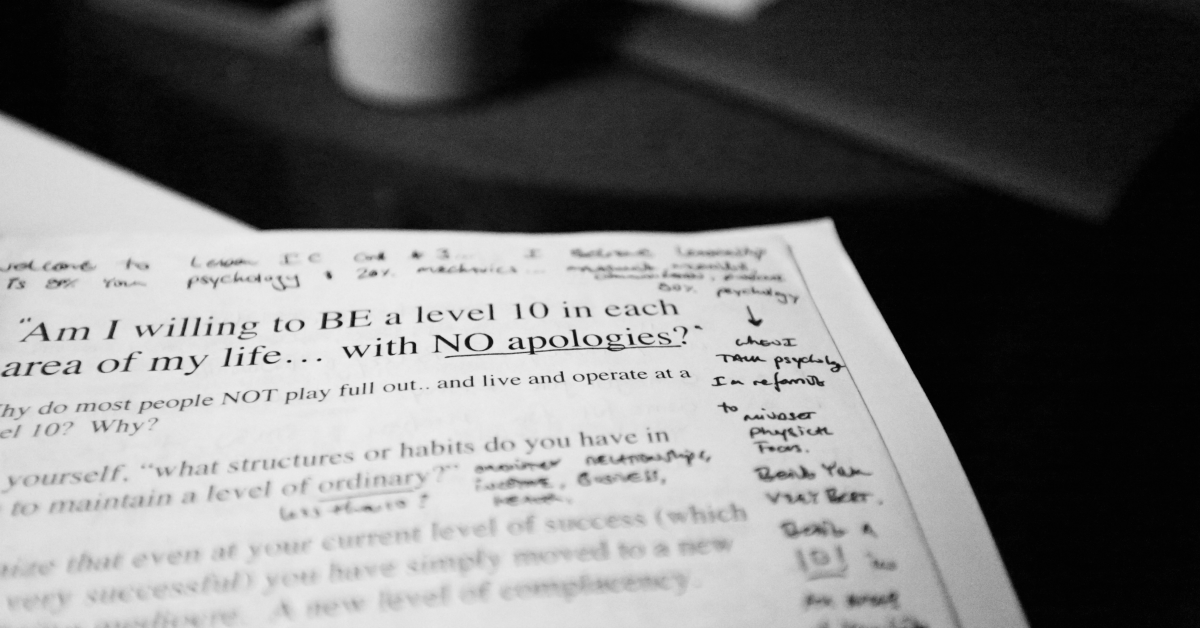 to Lesson # 3... I
psychology 20% mechanics...
80% psychology
"Am I willing to BE a level 10 in each
area of my life... with NO apologies?"
↓
when I
Talk psychology
I'm referring
hy do most people NOT play full out.. and live and operate at a
el 10? Why?
to mindset
physical
Focus.
yourself, "what structures or habits do you have in
to maintain a level of ordinary?" relationships,
income, business,
health.
less than 10?
Being Your
VERY BEST.
ize that even at your current level of success (which
very successful) you have simply moved to a new
mediocre. A new level of complacency.
Being A
10!